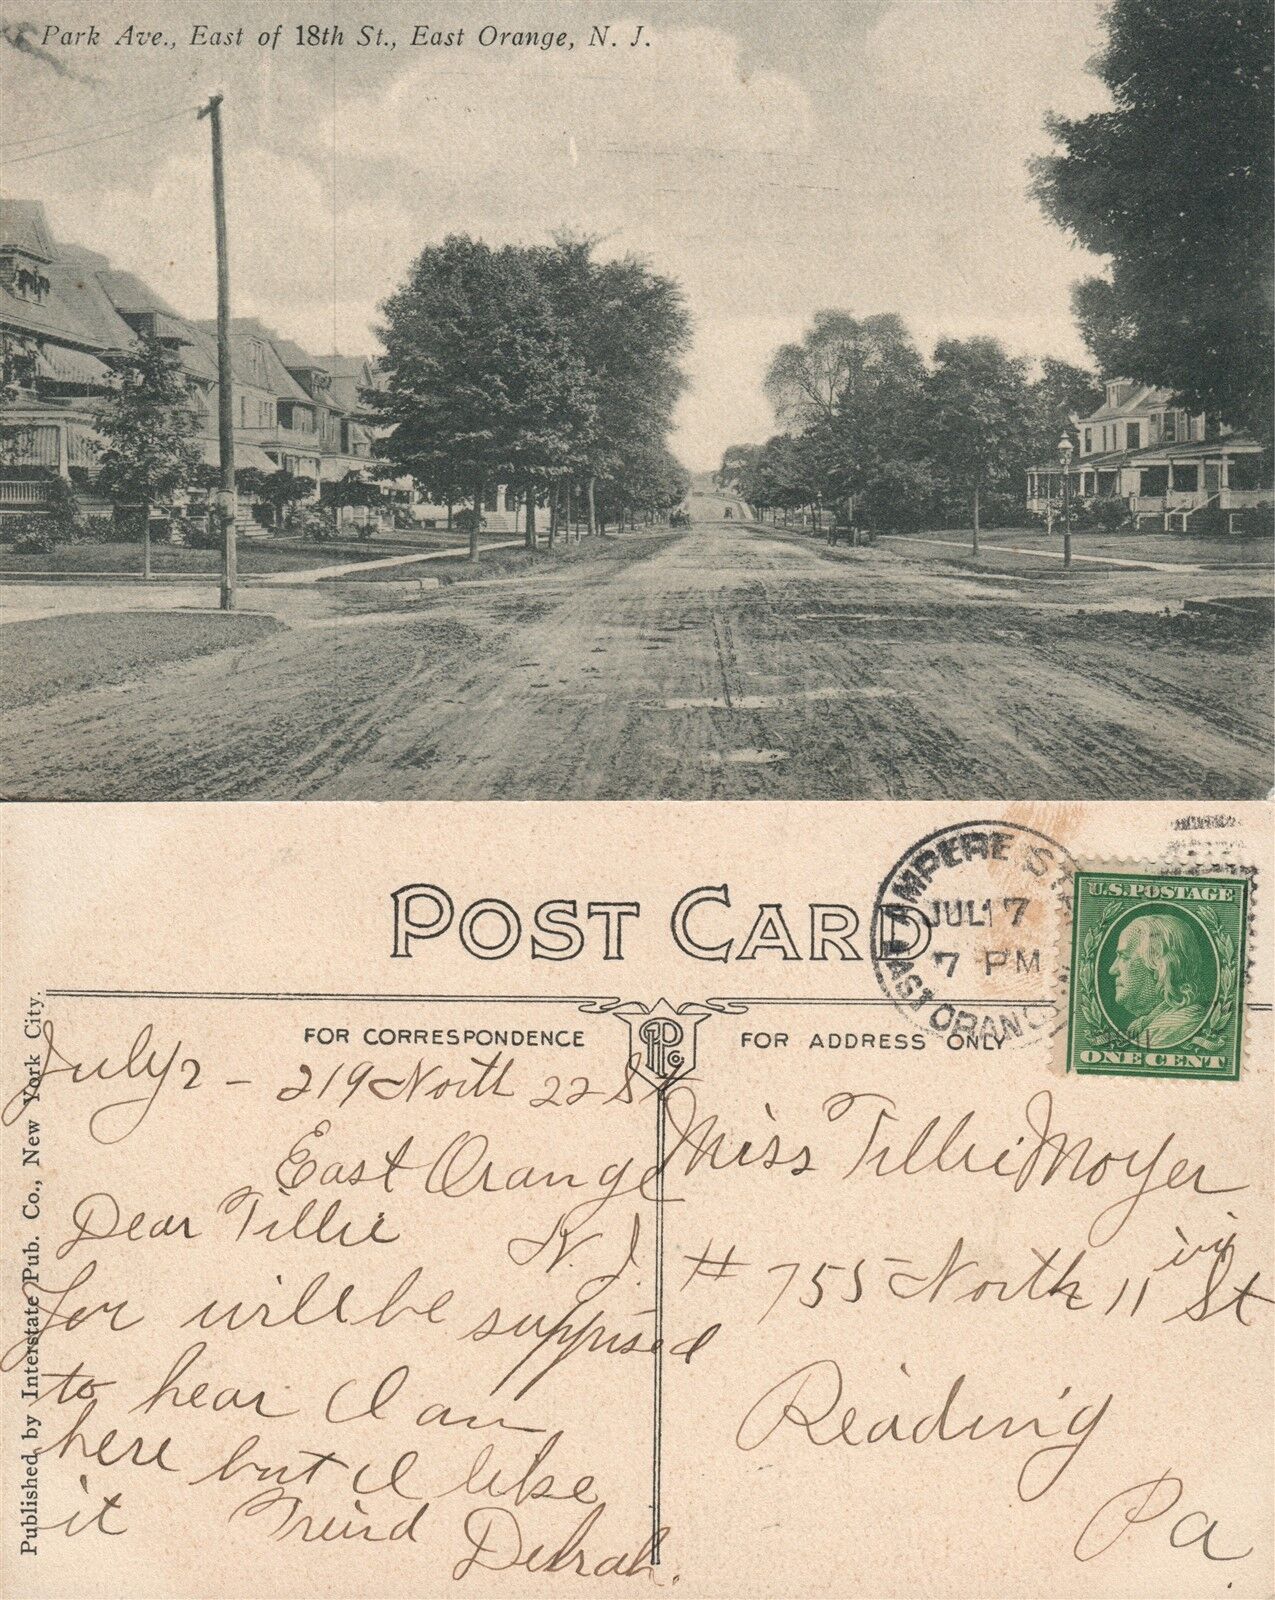 Park Ave., East of 18th St., East Orange, N. J.
POST CARD
AMPERE STA
JUL 17
7 PM
EAST ORANGE
U.S. POSTAGE
ONE CENT
FOR CORRESPONDENCE
P Co
FOR ADDRESS ONLY
Published by Interstate Pub. Co., New York City.
July 2 - 219 North 22 St
East Orange
N. J.
Dear Tillie
You will be supprised
to hear I am
here but I like
it Freind
Debrah.
Miss Tillie Moyer
# 755 North 11 St
Reading
Pa.